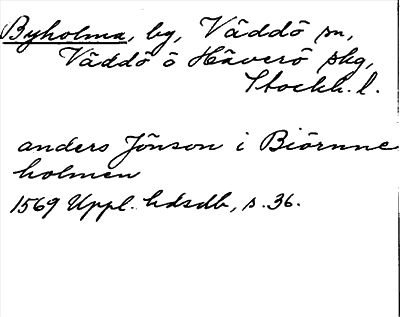 Byholma, by, Väddö sn,
Väddö o Häverö skg,
Stockh. l.
anders Jönson i Biörnne
holmen
1569 Uppl. hdsdb, s. 36.